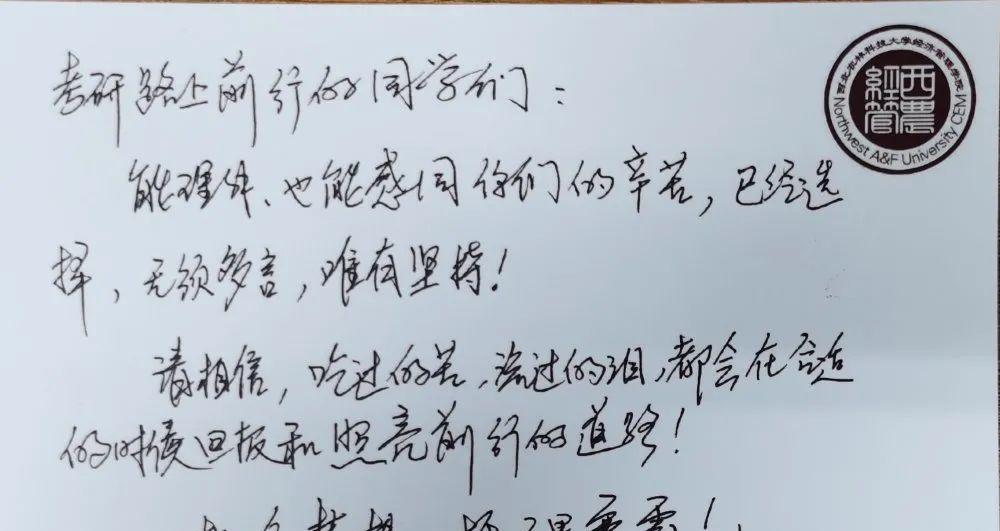 考研路上前行的同学们：
西北农林科技大学经济管理学院
西農
經管
Northwest A&F University CEM
能理解、也能感同你们的辛苦，已经选
择，无须多言，唯有坚持！
请相信，吃过的苦，流过的泪，都会在合适
的时候回报和照亮前行的道路！